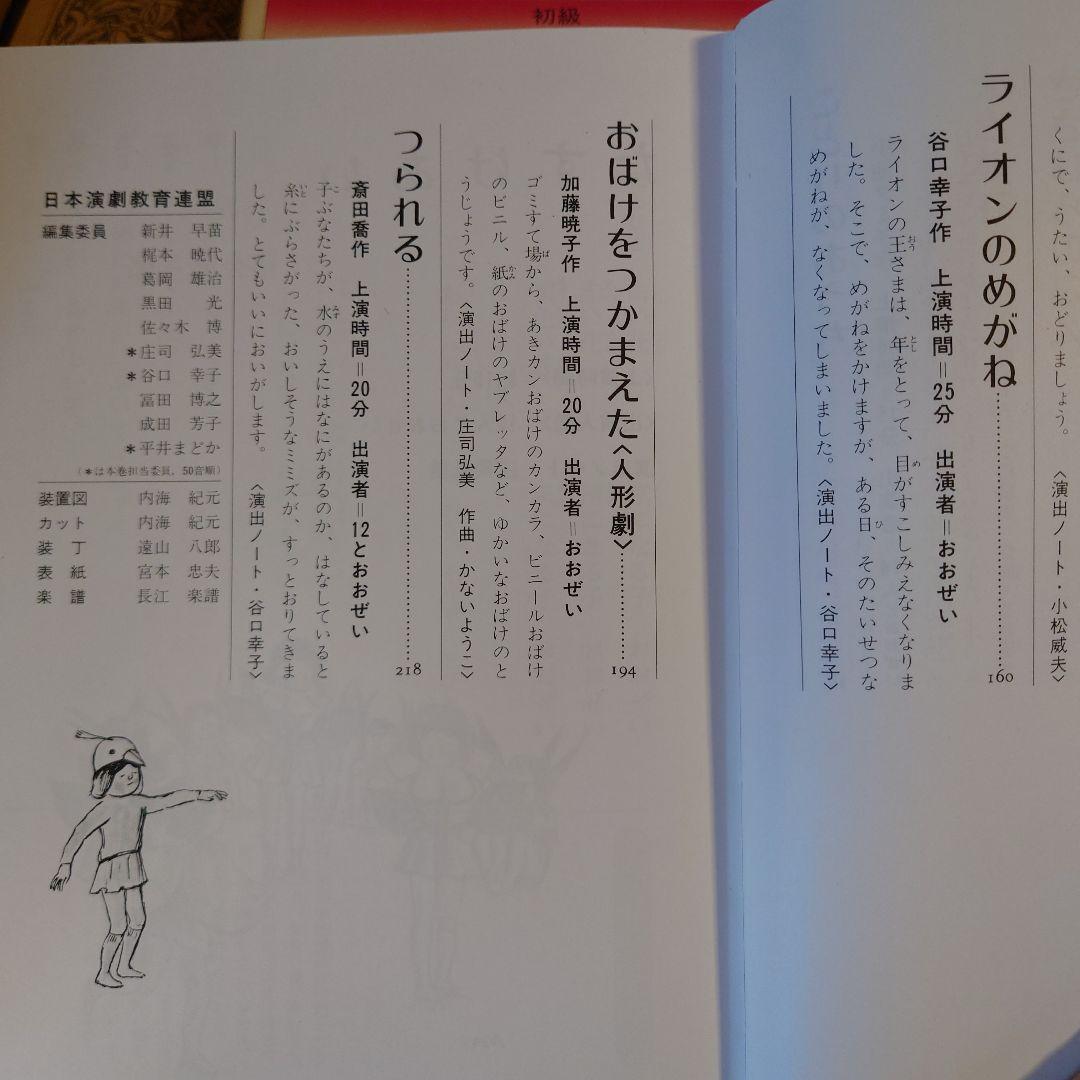 初級
くにで、うたい、おどりましょう。
〈演出ノート・小松威夫〉
ライオンのめがね……………160
谷口幸子作 上演時間＝25分 出演者＝おおぜい
ライオンの王さまは、年をとって、目がすこしみえなくなりま
した。そこで、めがねをかけますが、ある日、そのたいせつな
めがねが、なくなってしまいました。〈演出ノート・谷口幸子〉
おばけをつかまえた〈人形劇〉……………194
加藤暁子作 上演時間＝20分 出演者＝おおぜい
ゴミすて場から、あきカンおばけのカンカラ、ビニールおばけ
のビニル、紙のおばけのヤブレッタなど、ゆかいなおばけのと
うじょうです。〈演出ノート・庄司弘美 作曲・かないようこ〉
つられる……………218
斎田喬作 上演時間＝20分 出演者＝12とおおぜい
子ぶなたちが、水のうえにはなにがあるのか、はなしていると
糸にぶらさがった、おいしそうなミミズが、すっとおりてきま
した。とてもいいにおいがします。〈演出ノート・谷口幸子〉
日本演劇教育連盟
編集委員 新井 早苗
梶本 暁代
葛岡 雄治
黒田 光
佐々木 博
＊庄司 弘美
＊谷口 幸子
冨田 博之
成田 芳子
＊平井まどか
（＊は本巻担当委員、50音順）
装置図 内海 紀元
カット 内海 紀元
装丁 遠山 八郎
表紙 宮本 忠夫
楽譜 長江 楽譜